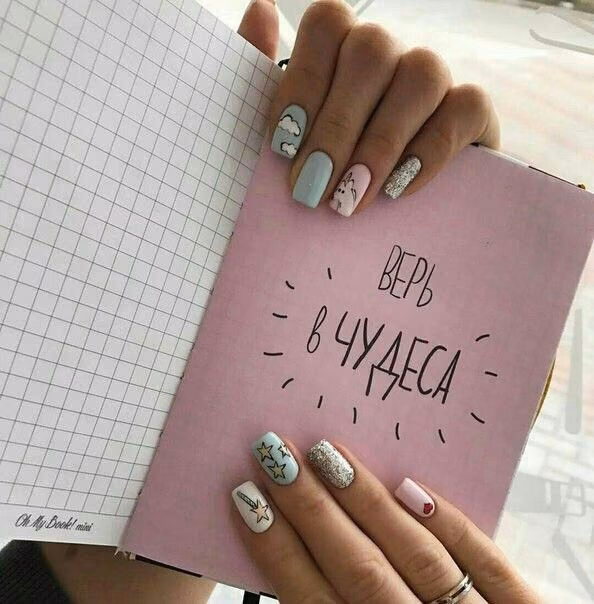 ВЕРЬ
в ЧУДЕСА
Oh My Book! mini